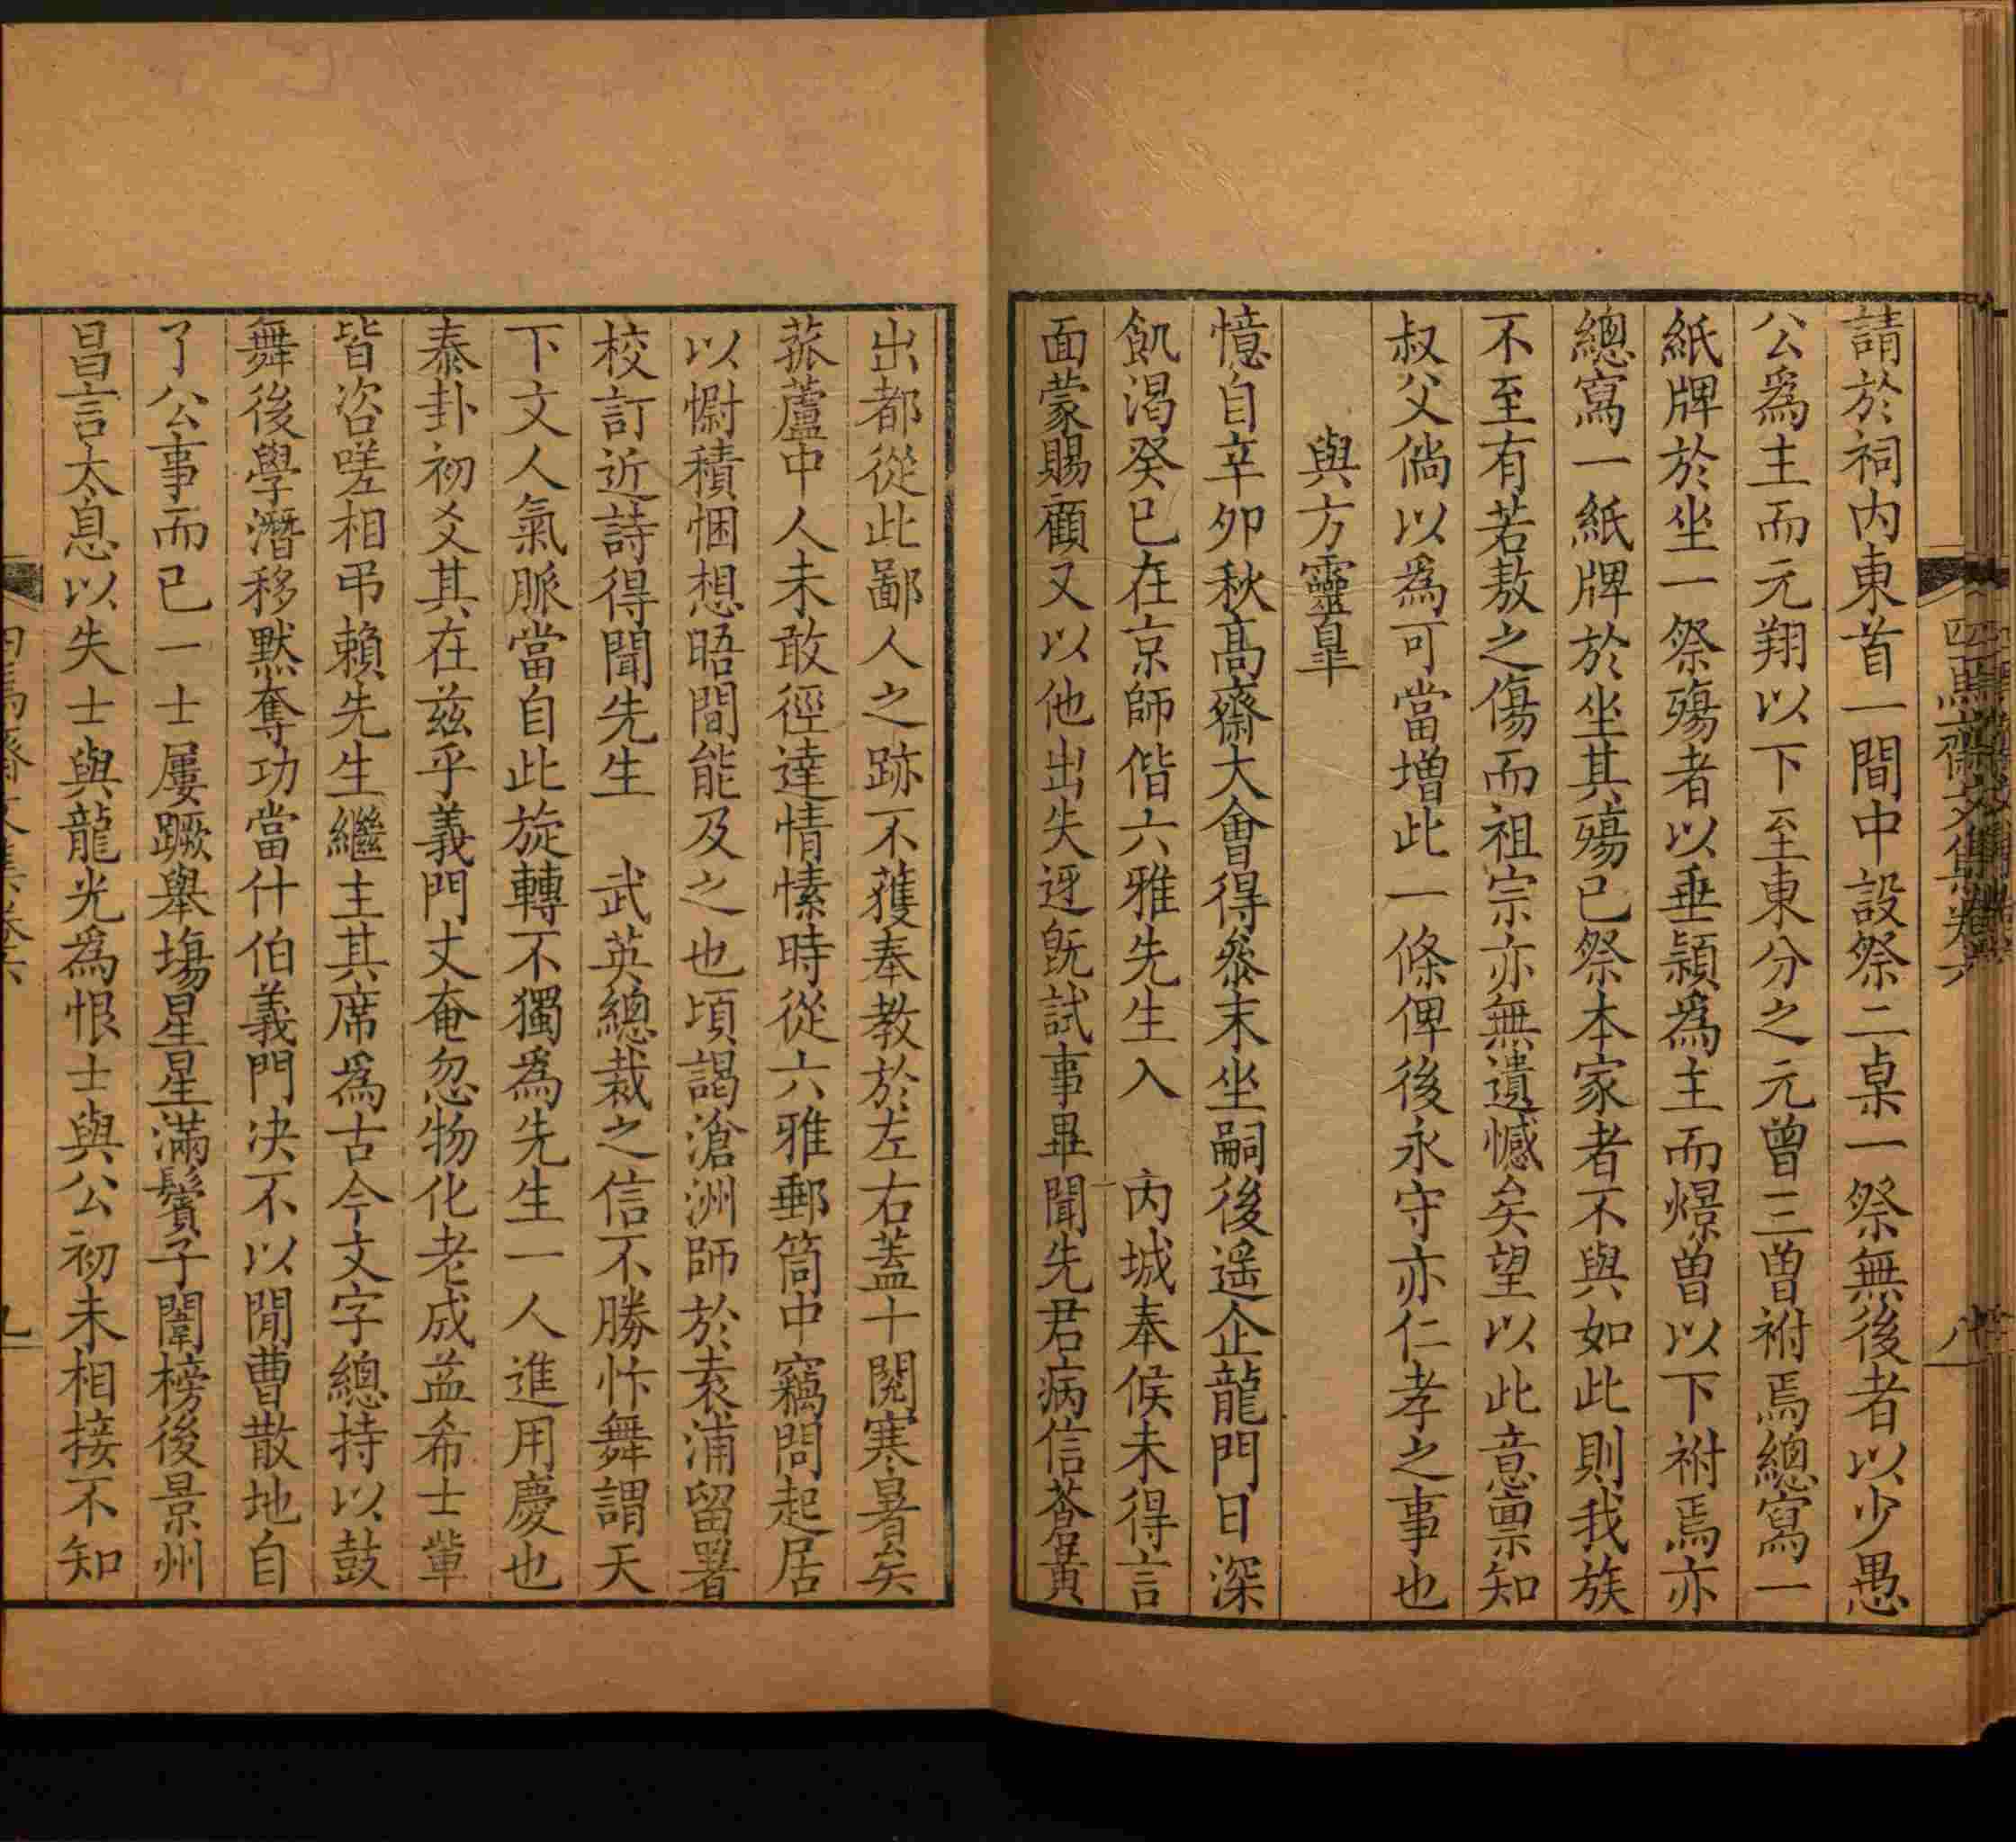 四焉齋文集卷六
八
請於祠内東首一間中設祭二桌一祭無後者以少愚
公爲主而元翔以下至東分之元曾三曾祔焉總寫一
紙牌於坐一祭殤者以垂穎爲主而燝曾以下祔焉亦
總寫一紙牌於坐其殤已祭本家者不與如此則我族
不至有若敖之傷而祖宗亦無遺憾矣望以此意禀知
叔父倘以爲可當增此一條俾後永守亦仁孝之事也
與方靈臯
憶自辛夘秋高齋大會得叅末坐嗣後遥企龍門日深
飢渴癸巳在京師偕六雅先生入　内城奉候未得言
面蒙賜顧又以他出失迓旣試事畢聞先君病信蒼黃
出都從此鄙人之跡不獲奉教於左右蓋十閱寒暑矣
菰蘆中人未敢徑達情愫時從六雅郵筒中竊問起居
以慰積悃想晤間能及之也頃謁滄洲師於袁浦留署
校訂近詩得聞先生　武英總裁之信不勝忭舞謂天
下文人氣脈當自此旋轉不獨爲先生一人進用慶也
泰卦初爻其在兹乎義門丈奄忽物化老成益希士軰
皆咨嗟相弔賴先生繼主其席爲古今文字總持以鼓
舞後學潛移默奪功當什伯義門决不以閒曹散地自
了公事而已一士屢蹶舉塲星星滿鬢子闈榜後景州
昌言太息以失士與龍光爲恨士與公初未相接不知
四焉齋文集卷六
九